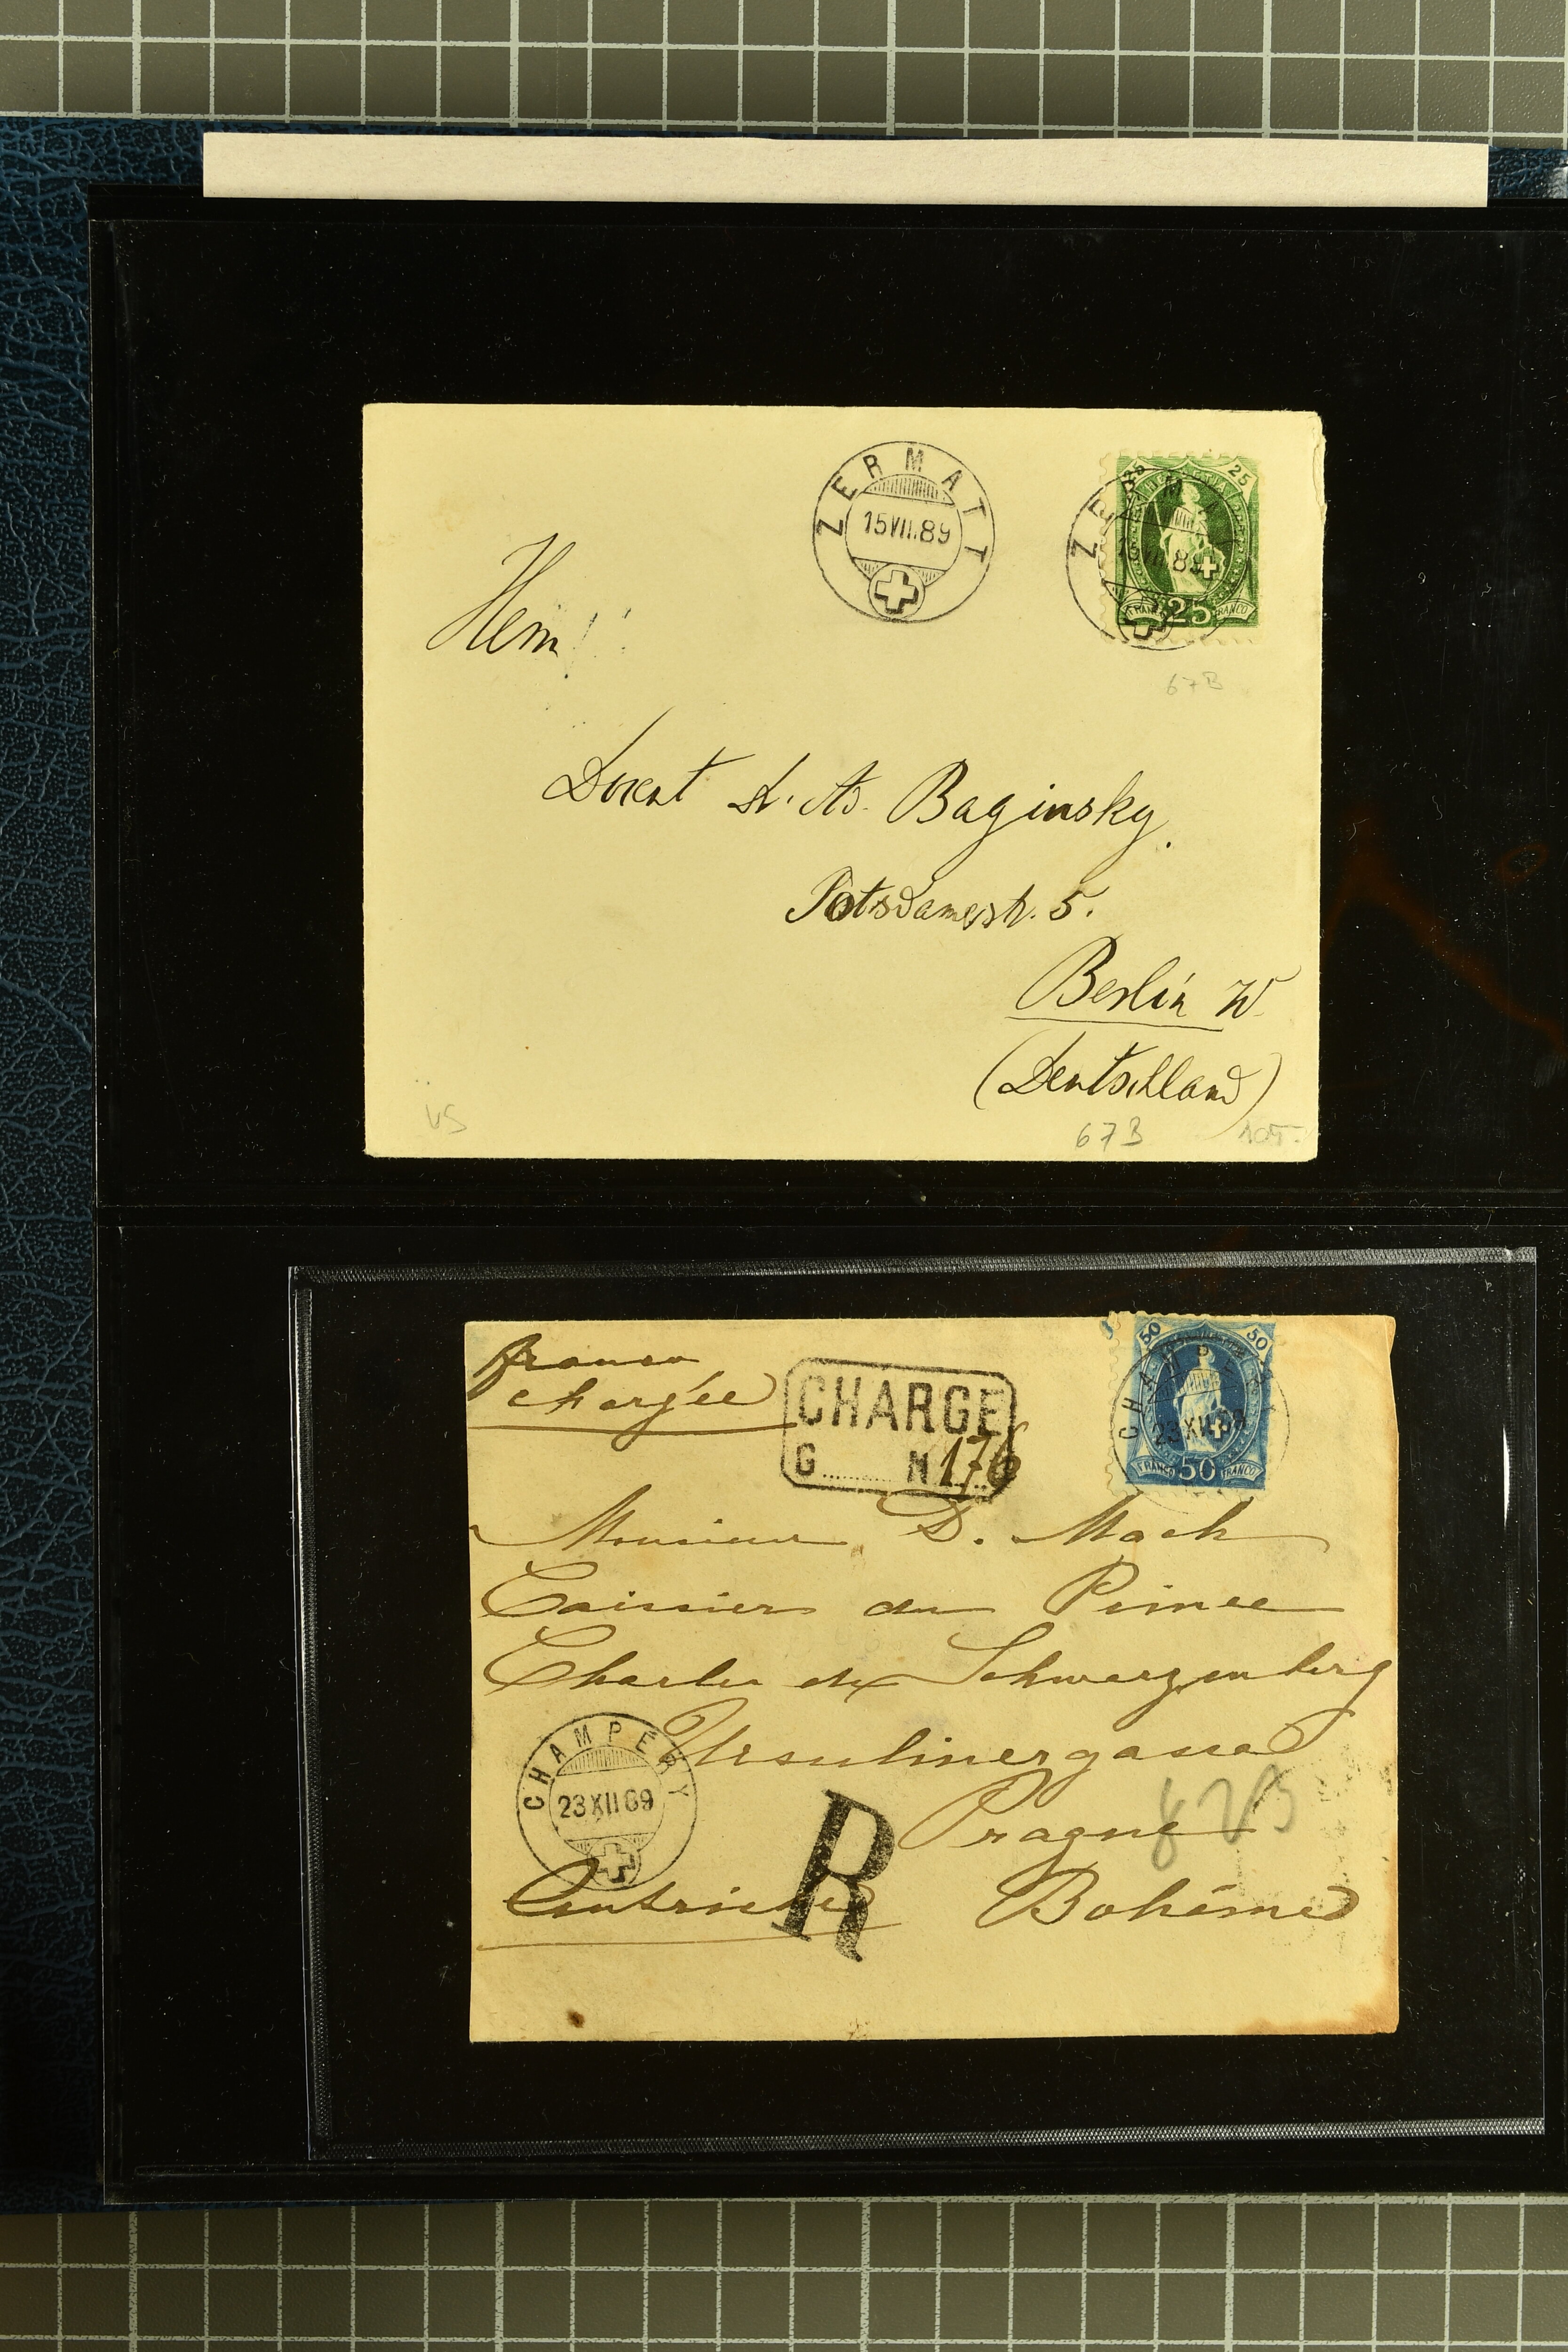 ZERMATT
15 VII. 89
25 25
ZERM
89
FRANCO 25 FRANCO
67B
Herrn
Docent Dr. Ad. Baginsky.
Potsdamerstr. 5.
Berlin W
(Deutschland)
67B 105.-
franco
chargée
CHARGÉ
G......... N 176
50 50
CHAMPERY
23 XII 89
FRANCO 50 FRANCO
Monsieur D. Mach
Caissier du Prince
Charles de Schwarzenberg
Ursulinergasse
CHAMPERY
23 XII 89
Prague
R
Autriche Bohême